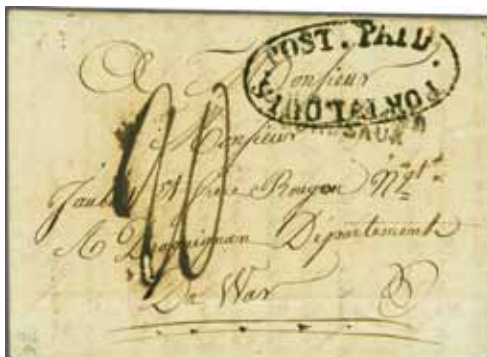 POST. PAID.
PORT LOUIS
A Monsieur
Monsieur
Jaubert et frère Rougon Nég.ts
A Draguignan Département
Du Var